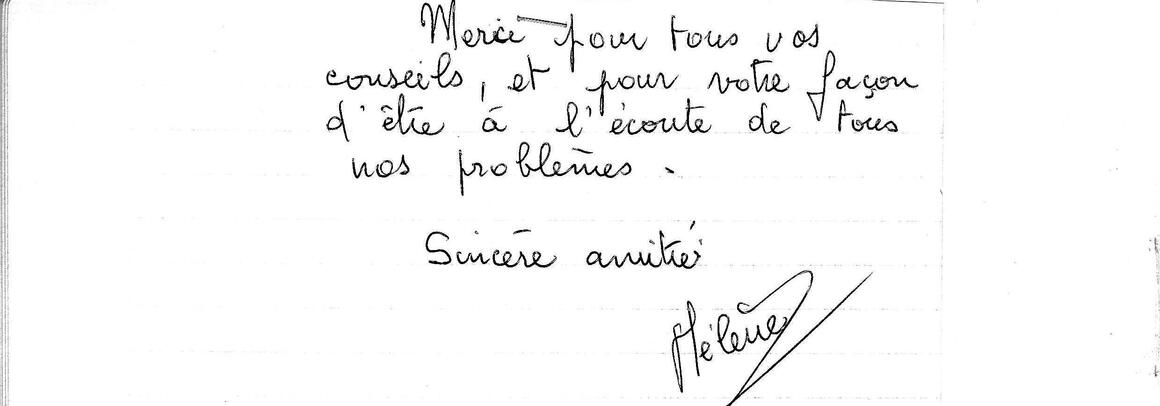 Merci pour tous vos
conseils, et pour votre façon
d'être à l'écoute de tous
nos problèmes.
Sincère amitié
Hélène